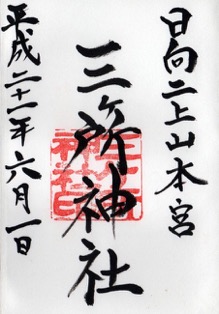 日向二上山本宮
三ヶ所神社
平成二十一年六月一日